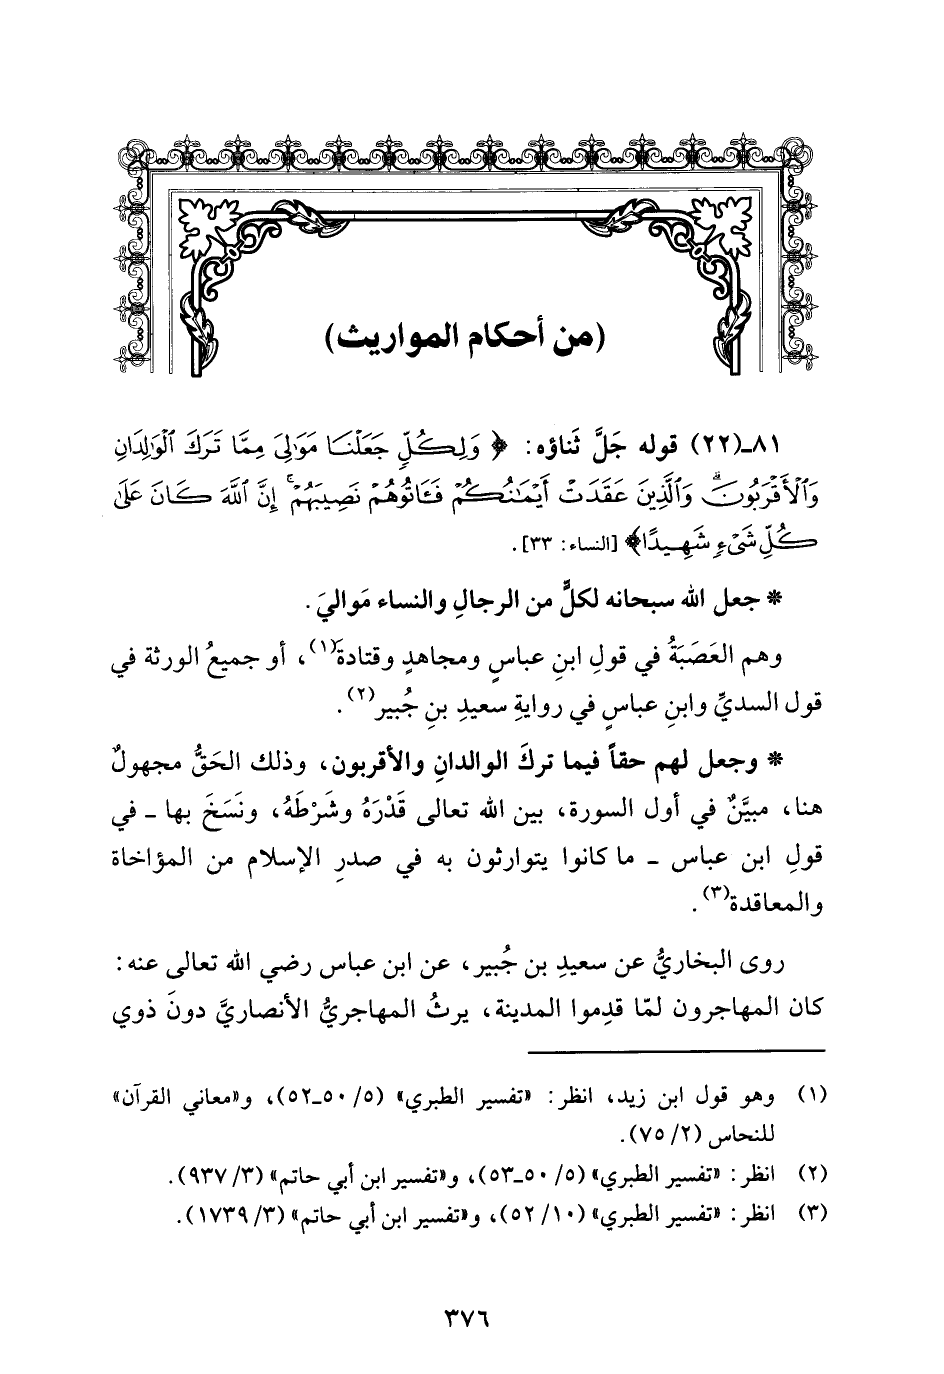 (من أحكام المواريث)
٨١ـ(٢٢) قوله جَلَّ ثَناؤه: ﴿ وَلِكُلٍّ جَعَلْنَا مَوَالِيَ مِمَّا تَرَكَ الْوَالِدَانِ
وَالْأَقْرَبُونَ ۚ وَالَّذِينَ عَقَدَتْ أَيْمَانُكُمْ فَآتُوهُمْ نَصِيبَهُمْ ۚ إِنَّ اللَّهَ كَانَ عَلَىٰ
كُلِّ شَيْءٍ شَهِيدًا﴾ [النساء: ٣٣].
* جعل الله سبحانه لكلٍّ من الرجالِ والنساء مَواليَ.
وهم العَصَبَةُ في قولِ ابنِ عباسٍ ومجاهدٍ وقتادةَ(١)، أو جميعُ الورثة في
قول السديِّ وابنِ عباسٍ في روايةِ سعيدِ بنِ جُبير(٢).
* وجعل لهم حقاً فيما تركَ الوالدانِ والأقربون، وذلك الحَقُّ مجهولٌ
هنا، مبيَّنٌ في أول السورة، بين الله تعالى قَدْرَهُ وشَرْطَهُ، ونَسَخَ بها ـ في
قولِ ابن عباس ـ ما كانوا يتوارثون به في صدرِ الإسلام من المؤاخاة
والمعاقدة(٣).
روى البخاريُّ عن سعيدِ بن جُبير، عن ابن عباس رضي الله تعالى عنه:
كان المهاجرون لمّا قدِموا المدينة، يرثُ المهاجريُّ الأنصاريَّ دونَ ذوي
(١) وهو قول ابن زيد، انظر: «تفسير الطبري» (٥/ ٥٠ـ٥٢)، و«معاني القرآن»
للنحاس (٢/ ٧٥).
(٢) انظر: «تفسير الطبري» (٥/ ٥٠ـ٥٣)، و«تفسير ابن أبي حاتم» (٣/ ٩٣٧).
(٣) انظر: «تفسير الطبري» (١٠/ ٥٢)، و«تفسير ابن أبي حاتم» (٣/ ١٧٣٩).
٣٧٦